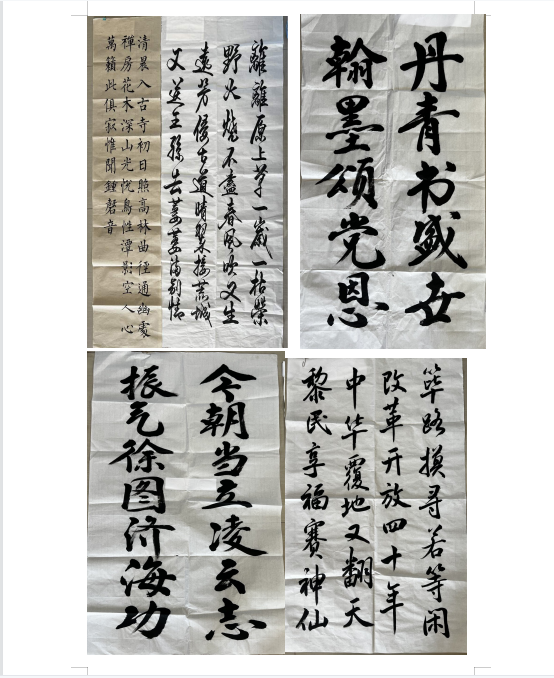 離離原上草一歲一枯榮
野火燒不盡春風吹又生
遠芳侵古道晴翠接荒城
又送王孫去萋萋滿別情
清晨入古寺初日照高林曲徑通幽處
禪房花木深山光悅鳥性潭影空人心
萬籟此俱寂惟聞鍾磬音
丹青书盛世
翰墨颂党恩
今朝当立凌云志
振气徐图济海功
筚路摸寻若等闲
改革开放四十年
中华覆地又翻天
黎民享福賽神仙